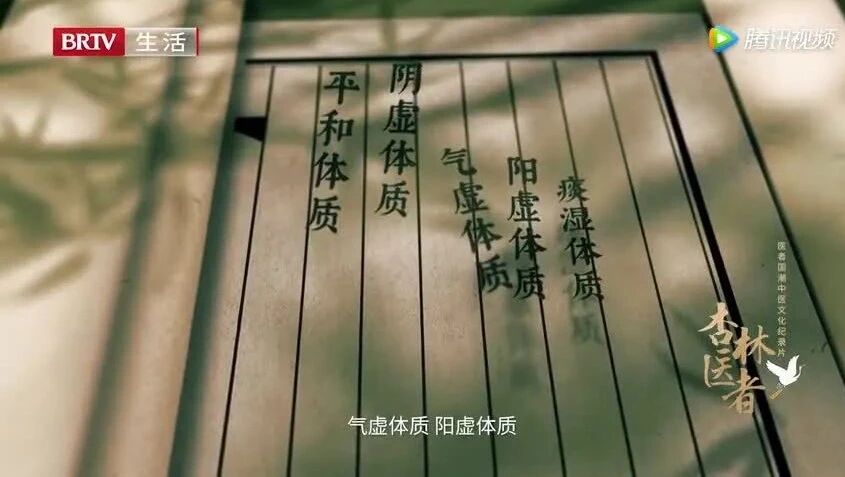 BRTV 生活
腾讯视频
平和体质
阴虚体质
气虚体质
阳虚体质
痰湿体质
医者国潮中医文化纪录片
杏林医者
气虚体质 阳虚体质